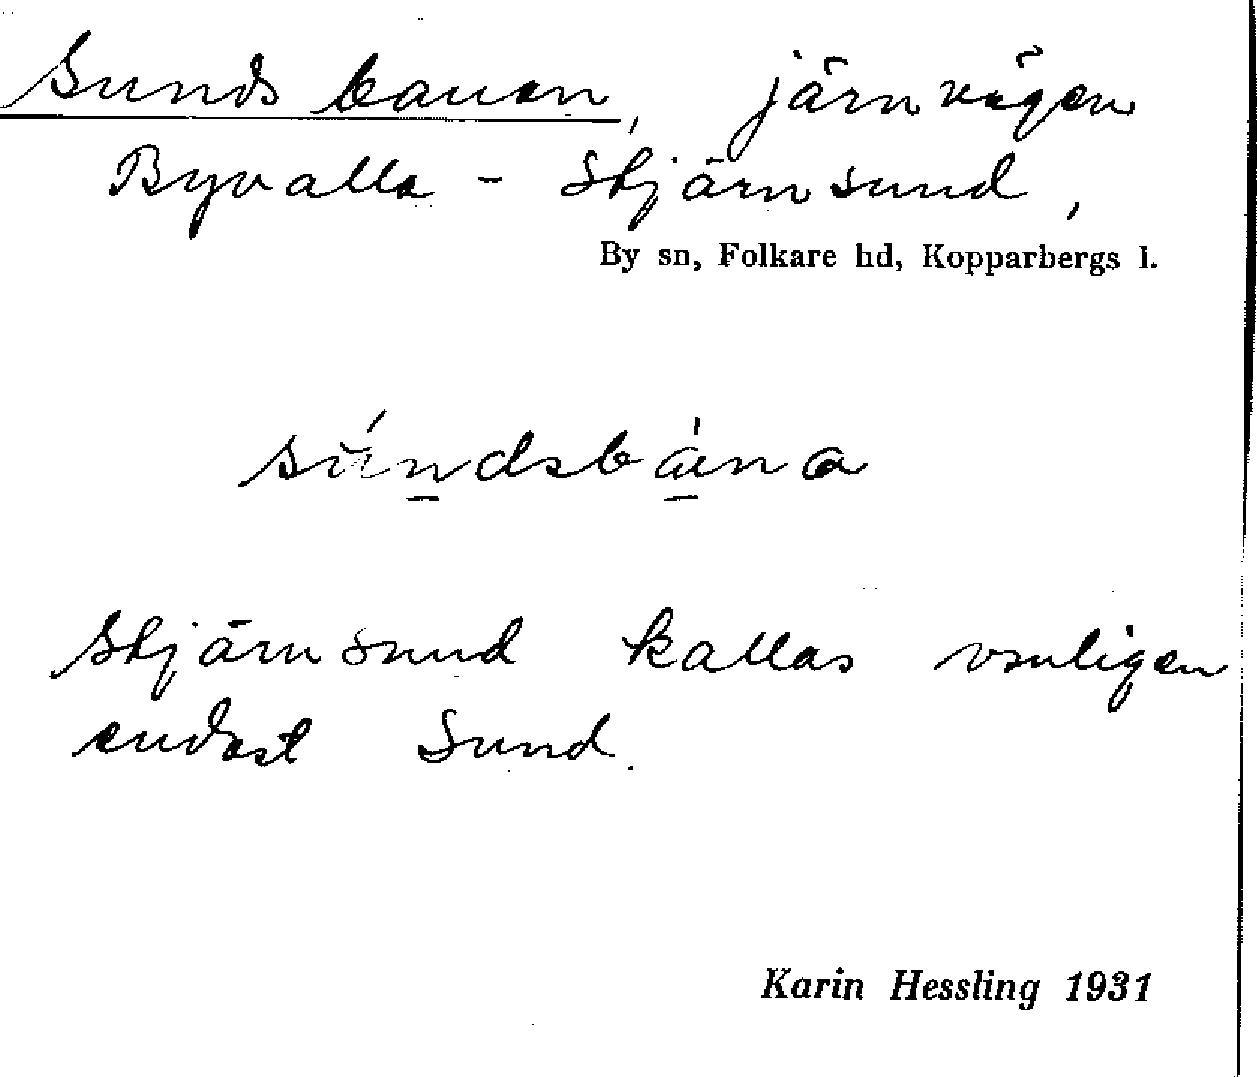 Sundsbanan, järnvägen
Byvalla - Stjärnsund,
By sn, Folkare hd, Kopparbergs l.
sún̲dsbá̲na
Stjärnsund kallas vanligen
endast Sund.
Karin Hessling 1931